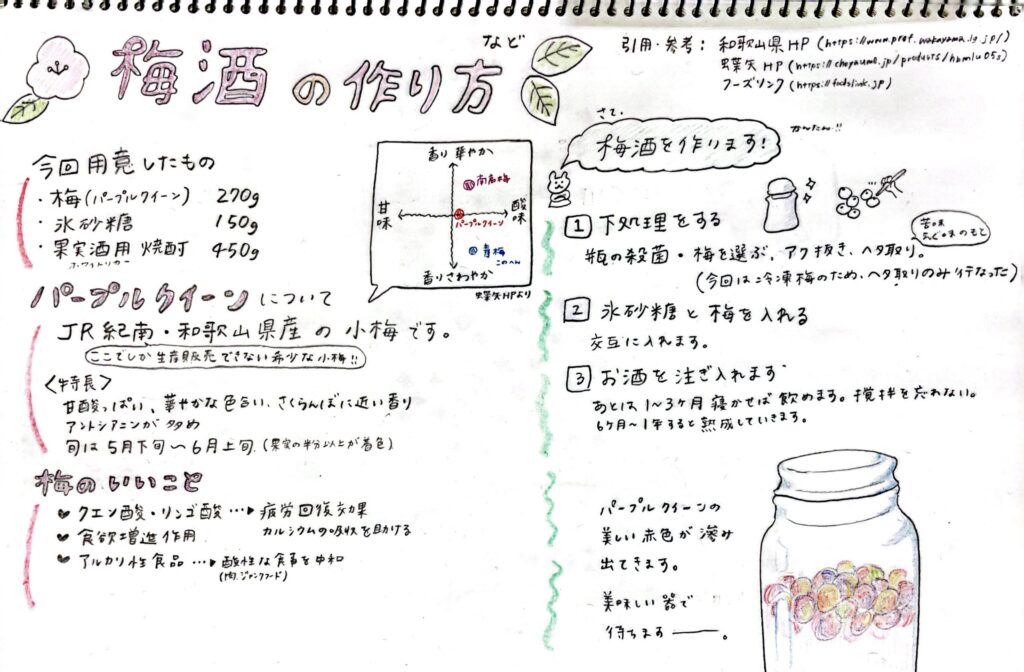 梅酒の作り方
など
引用・参考: 和歌山県HP (https://www.pref.wakayama.lg.jp/)
蝶矢HP (https://choyaume.jp/products/hbmlu05s)
フーズリンク (https://foodslink.jp)
今回用意したもの
・梅(パープルクイーン) 270g
・氷砂糖 150g
・果実酒用焼酎 450g
ホワイトリカー
香り華やか
南高梅
甘味
酸味
パープルクイーン
青梅
このへん
香りさわやか
蝶矢HPより
パープルクイーンについて
JR紀南・和歌山県産の小梅です。
ここでしか生産販売できない希少な小梅!!
<特長>
甘酸っぱい、華やかな色合い、さくらんぼに近い香り
アントシアニンが多め
旬は5月下旬〜6月上旬 (果実の半分以上が着色)
梅のいいこと
クエン酸・リンゴ酸…▶疲労回復効果
カルシウムの吸収を助ける
食欲増進作用
アルカリ性食品…▶酸性な食事を中和
(肉、ジャンクフード)
さて、
梅酒を作ります!
かんたん!!
1 下処理をする
苦味
えぐ味のもと
瓶の殺菌・梅を選ぶ、アク抜き、ヘタ取り。
(今回は冷凍梅のため、ヘタ取りのみ行なった)
2 氷砂糖と梅を入れる
交互に入れます。
3 お酒を注ぎ入れます
あとは1〜3ヶ月寝かせば飲めます。撹拌を忘れない。
6ヶ月〜1年すると熟成していきます。
パープルクイーンの
美しい赤色が滲み
出てきます。
美味しい器で
待ちます――。